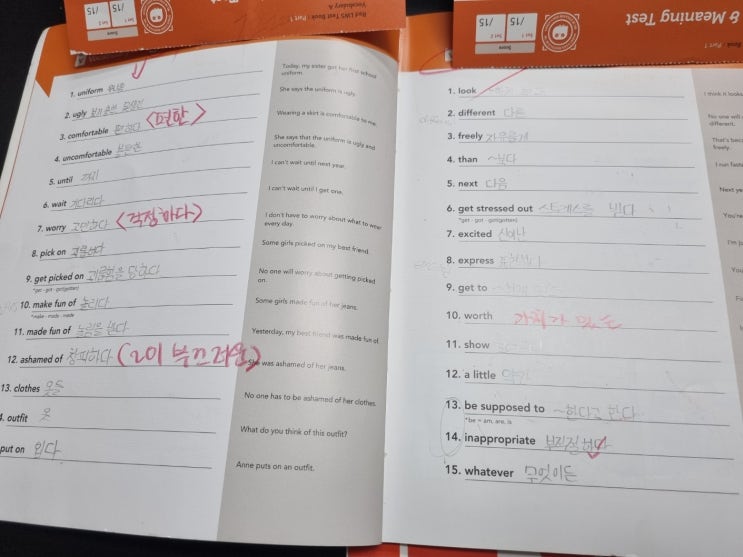 Score
Set 1 Set 2
/15 /15
Red LWS Test Book : Part 1
Vocabulary A
Test
& Meaning Test
Book : Part 1
Score
Set 1 Set 2
/15 /15
1. uniform
2. ugly
3. comfortable 편하다 <편한>
4. uncomfortable 불편한
5. until 까지
6. wait 기다리다
7. worry 고민하다 <걱정하다>
8. pick on 괴롭히다
9. get picked on 괴롭힘을 당하다
*get - got - got(gotten)
10. make fun of 놀리다
*make - made - made
11. made fun of 놀림을
12. ashamed of 창피하다 (~이 부끄러운)
13. clothes 옷들
4. outfit 옷
put on 입다
Today, my sister got her first school
uniform.
She says the uniform is ugly.
Wearing a skirt is comfortable to me.
She says that the uniform is ugly and
uncomfortable.
I can't wait until next year.
I can't wait until I get one.
I don't have to worry about what to wear
every day.
Some girls picked on my best friend.
No one will worry about getting picked
on.
Some girls made fun of her jeans.
Yesterday, my best friend was made fun of.
She was ashamed of her jeans.
No one has to be ashamed of her clothes.
What do you think of this outfit?
Anne puts on an outfit.
1. look
2. different 다른
3. freely 자유롭게
4. than ~보다
5. next 다음
6. get stressed out 스트레스를
*get - got - got(gotten)
7. excited 신이난
8. express
9. get to
10. worth 가치가 있는
11. show
12. a little
13. be supposed to ~한다고 한다
*be = am, are, is
14. inappropriate 부적절하다
15. whatever 무엇이든
I think it looks
No one will
different.
That's
freely.
I run
Next ye
You're
I'm
You